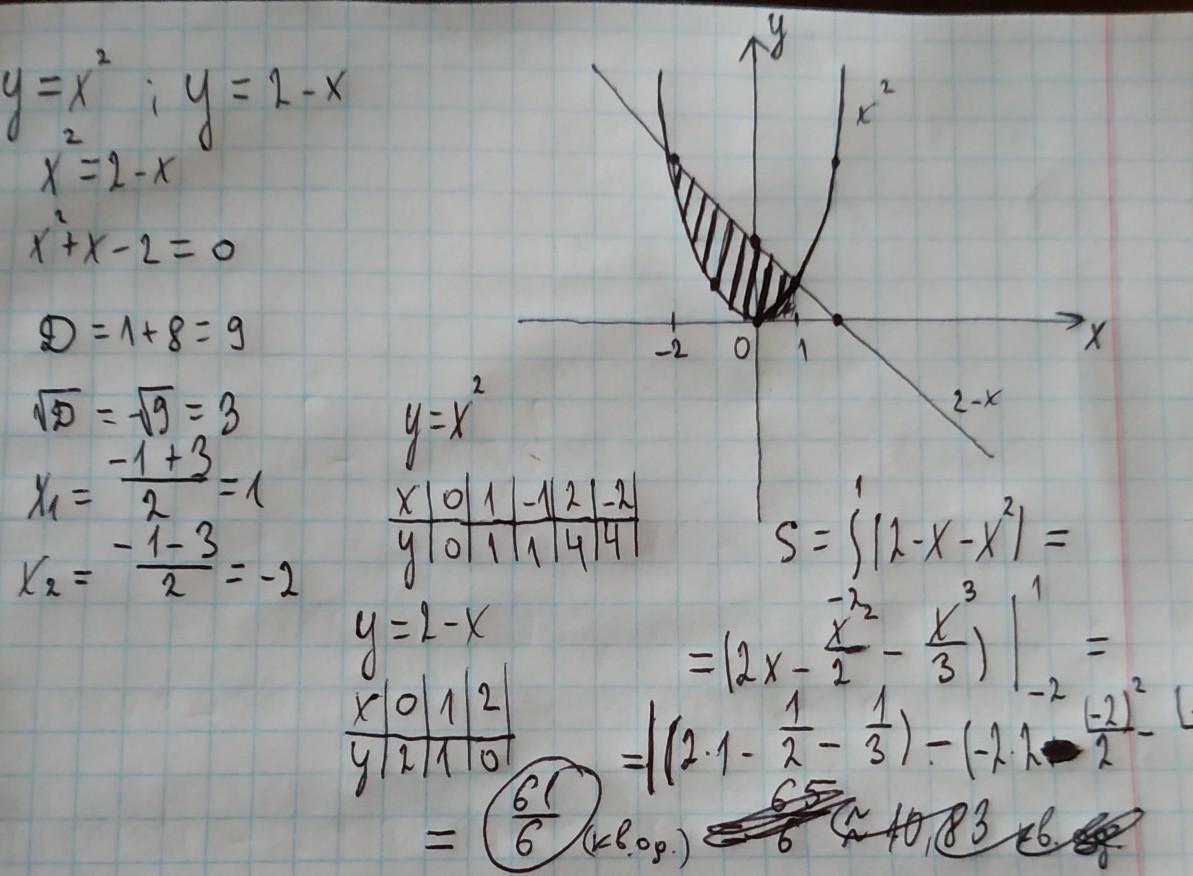 y = x² ; y = 2 - x
x² = 2 - x
x² + x - 2 = 0
D = 1 + 8 = 9
√D = √9 = 3
x₁ = (-1 + 3)/2 = 1
x₂ = (-1 - 3)/2 = -2
y
x²
-2 0 1 x
2-x
y = x²
x | 0 | 1 | -1 | 2 | -2
y | 0 | 1 | 1 | 4 | 4
y = 2 - x
x | 0 | 1 | 2
y | 2 | 1 | 0
S = ∫₋₂¹ (2 - x - x²) =
= (2x - x²/2 - x³/3) |₋₂¹ =
= |(2·1 - 1/2 - 1/3) - (-2·2 (-2)²/2 -
= 61/6 (кв.од.) 65/6 ≈ 10,83 кв.